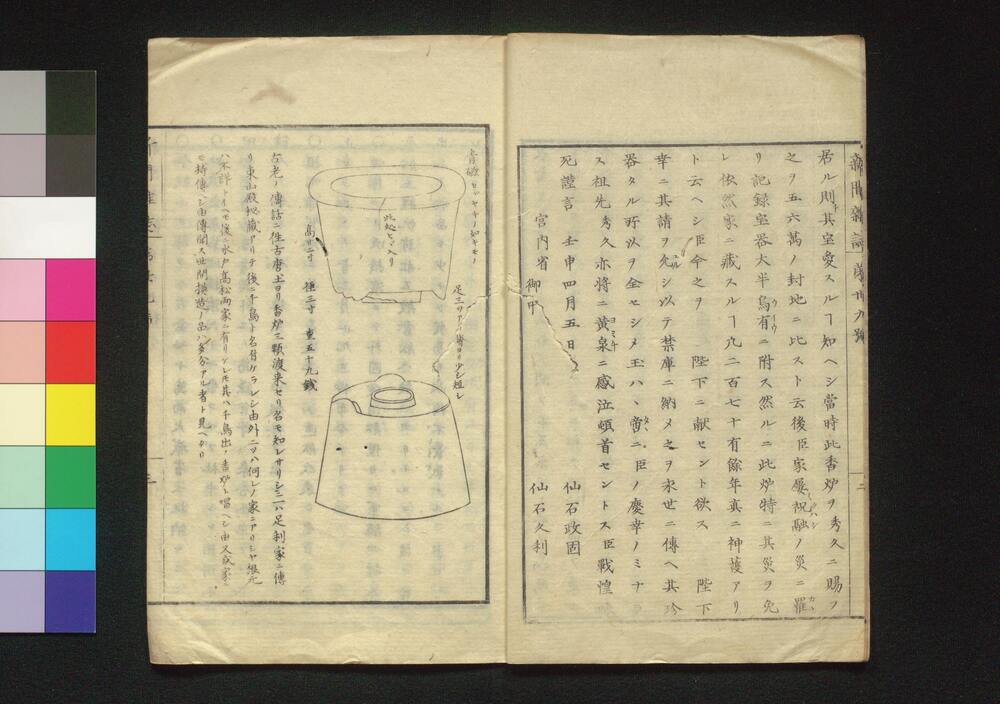 新聞雜誌 第卅九號
居ル則其室愛スルヿ知ヘシ當時此香炉ヲ秀久ニ賜フ
之ヲ五六萬ノ封地ニ比スト云後臣家屡祝融ノ災ニ罹
リ記録宝器大半烏有ニ附ス然ルニ此炉特ニ其災ヲ免
レ依然家ニ藏スルヿ凢二百七十有餘年真ニ神護アリ
ト云ヘシ臣今之ヲ 陛下ニ献セント欲ス 陛下
幸ニ其請ヲ允シ以テ禁庫ニ納メ之ヲ永世ニ傳ヘ其珍
器タル所以ヲ全セシメ玉ハヽ啻ニ臣ノ慶幸ノミナラ
ス祖先秀久亦將ニ黄泉ニ感泣頓首セントス臣戰惶
死謹言 壬申四月五日 仙石政固
宮内省 御中 仙石久利
二
青磁
此処ヒヾ入
足三ツアリ 少シ短シ
高サ二寸 徑三寸 重五十九錢
古老ノ傳話ニ往古唐土ヨリ香炉三顆渡来セリ名モ知レサリシニ一ハ足利家ニ傳
リ東山殿秘藏アリテ後ニ千鳥ト名付ケラレシ由外二ツハ何レノ家ニアリシヤ根元
ハ不詳トイヘモ後ニ水戸高松両家ニ有リ其ハ千鳥出ノ香炉ト唱ヘシ由又或家ニ
モ持傳ヘシ由傳聞ス世間摸造ノ品ハ多分アル者ト見ヘタリ
三